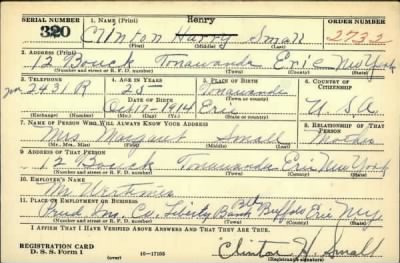 SERIAL NUMBER
1. NAME (Print)
Henry
ORDER NUMBER
320
Clinton Harry Small
2732
(First) (Middle) (Last)
2. ADDRESS (Print)
12 Bouck Tonawanda Erie New York
(Number and street or R. F. D. number) (Town) (County) (State)
3. TELEPHONE
4. AGE IN YEARS
5. PLACE OF BIRTH
6. COUNTRY OF CITIZENSHIP
2431 R
25
Tonawanda
(Town or county)
DATE OF BIRTH
Oct 17 1914
Erie
U.S.A
(Exchange) (Number) (Mo.) (Day) (Yr.) (State or country)
7. NAME OF PERSON WHO WILL ALWAYS KNOW YOUR ADDRESS
8. RELATIONSHIP OF THAT PERSON
Mrs. Margaret Small
Mother
(Mr., Mrs., Miss) (First) (Middle) (Last)
9. ADDRESS OF THAT PERSON
12 Bouck Tonawanda Erie New York
(Number and street or R. F. D. number) (Town) (County) (State)
10. EMPLOYER'S NAME
Mr.
11. PLACE OF EMPLOYMENT OR BUSINESS
Prud. Ins. Co. Liberty Bank Buffalo Erie N.Y.
(Number and street or R. F. D. number) (Town) (County) (State)
I AFFIRM THAT I HAVE VERIFIED ABOVE ANSWERS AND THAT THEY ARE TRUE.
REGISTRATION CARD
D. S. S. Form 1
(over)
16—17105
Clinton H. Small
(Registrant's signature)